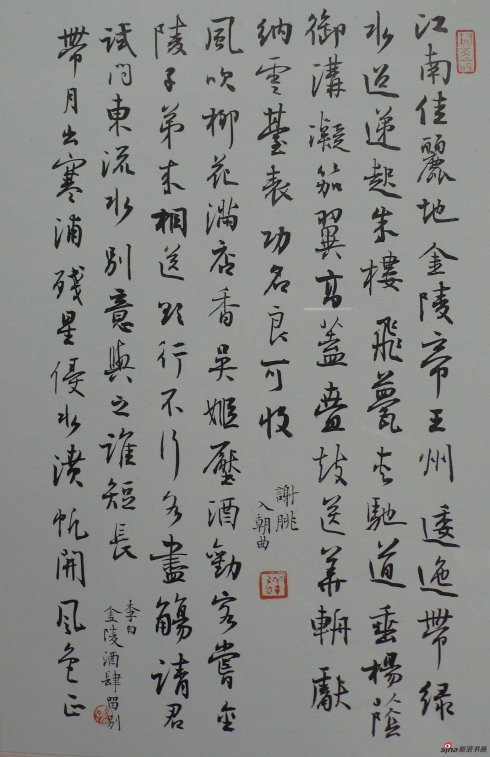 江南佳麗地金陵帝王州逶迤帶綠
水迢遞起朱樓飛甍夾馳道垂楊蔭
御溝凝笳翼高蓋疊鼓送華輈獻
納雲臺表功名良可收
謝朓
入朝曲
風吹柳花滿店香吳姬壓酒勸客嘗金
陵子弟來相送欲行不行各盡觴請君
試問東流水別意與之誰短長
李白
金陵酒肆留別
帶月出寒浦殘星水濆帆開風色正
sina新浪书画